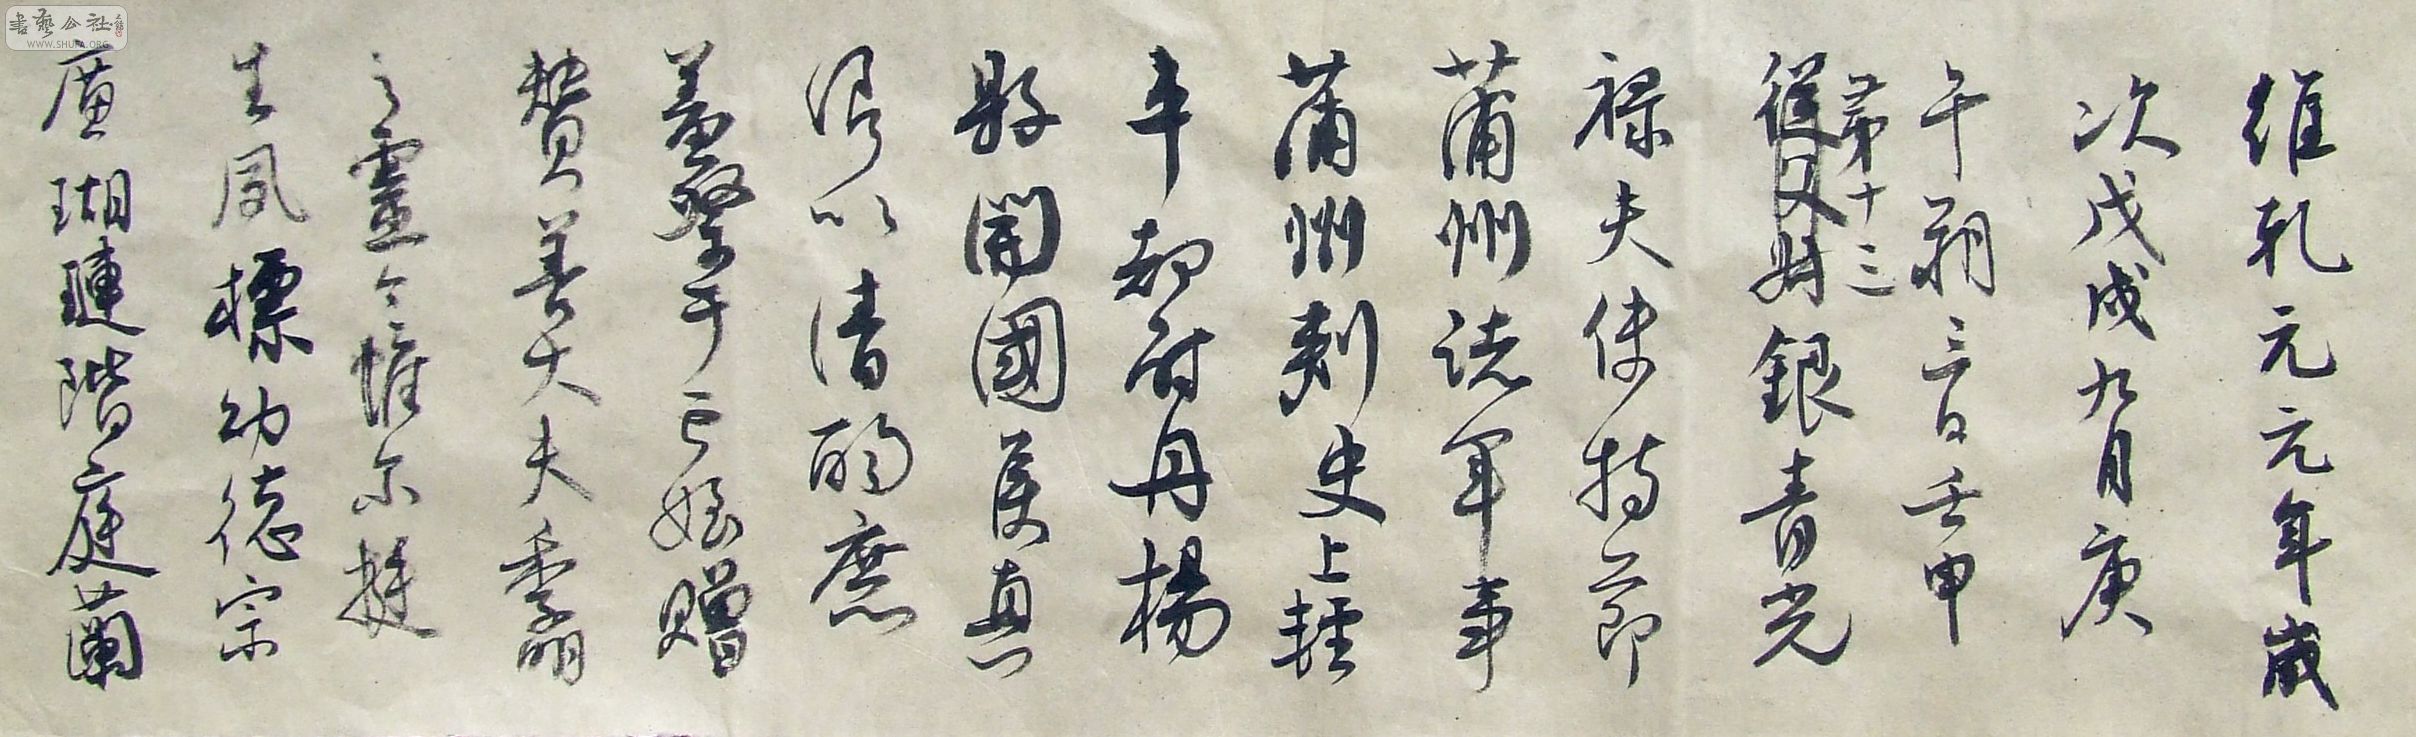 維乹元元年歲
次戊戌九月庚
午朔三日壬申
第十三
從父
叔銀青光
祿夫使持節
蒲州諸軍事
蒲州刺史上輕
車都尉丹楊
縣開國侯真
卿以清酌庶
羞祭于亡姪贈
贊善大夫季明
之靈曰惟爾挺
生夙標幼德宗
廟瑚璉階庭蘭
書藝公社
WWW.SHUFA.ORG